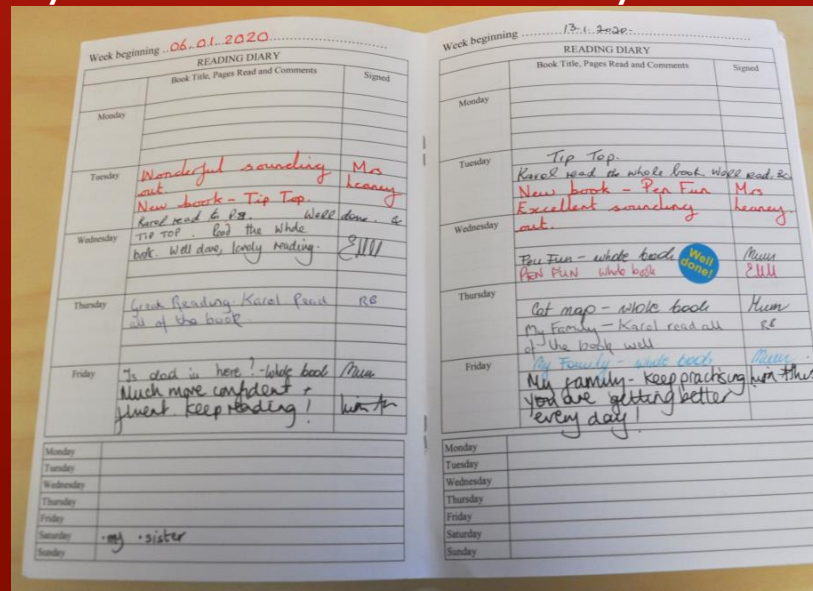 Week beginning 06.01.2020
READING DIARY
Book Title, Pages Read and Comments
Signed
Monday
Tuesday
Wonderful sounding Mrs
out. Leaney
New book - Tip Top.
Karol read to Well done.
Wednesday
TIP TOP. Read the whole
book. Well done, lovely reading.
Thursday
Great Reading. Karol Read RB
all of the book.
Friday
Is dad in here? - whole book Mum
Much more confident +
fluent. Keep reading!
Monday
Tuesday
Wednesday
Thursday
Friday
Saturday
·my ·sister
Sunday
Week beginning 13.1.2020.
READING DIARY
Book Title, Pages Read and Comments
Signed
Monday
Tuesday
Tip Top.
Karol read the whole book. Well read.
New book - Pen Fun Mrs
Excellent sounding Leaney
Wednesday
out.
Pen Fun - whole book Mum
PEN FUN whole book
Well done!
Thursday
Cat nap - whole book Mum
My Family - Karol read all RB
of the book well
Friday
My Family - whole book Mum
My family - keep practising
you are getting better
every day!
Monday
Tuesday
Wednesday
Thursday
Friday
Saturday
Sunday